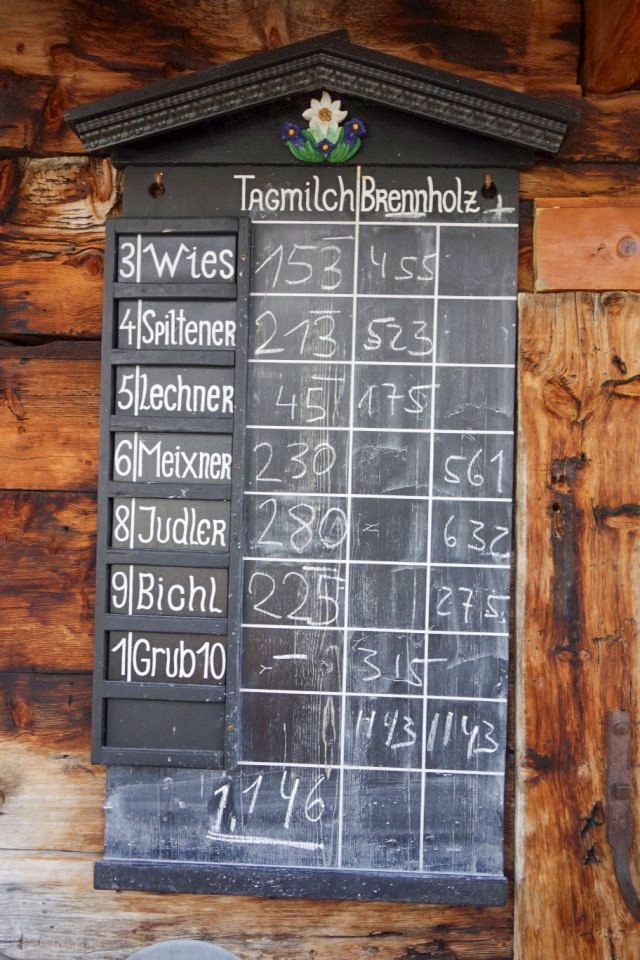 Tagmilch Brennholz +
3 Wies 153 455
4 Spiltener 213 523
5 Lechner 45 175
6 Meixner 230 561
8 Judler 280 - 632
9 Bichl 225 275
1 Grub10 - 315
1143 1143
1.146